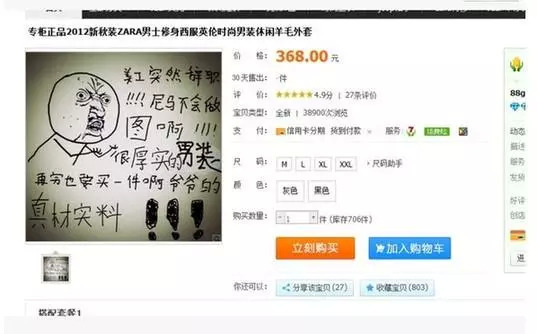 专柜正品2012新秋装ZARA男士修身西服英伦时尚男装休闲羊毛外套
美工突然辞职
!!! 尼马不会做
图啊!!!
很厚实的男装
再穷也要买一件啊爷爷的
真材实料!!!
价 格: 368.00 元
30天售出: -件
评 价: !!!!! 4.9分 | 27条评价
宝贝类型: 全新 | 38900次浏览
支 付: 信用卡分期 货到付款 × 服务: 7
尺 码: M L XL XXL 尺码助手
颜 色: 灰色 黑色
购买数量: - 1 + 件 (库存706件)
立刻购买 加入购物车
你还可以: 分享该宝贝 (27) 收藏宝贝 (803)
搭配套餐1
88g
动态
描述
服务
发货
好评
创店
进